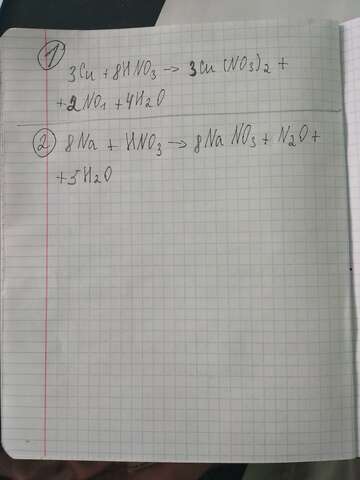 1
3Cu + 8HNO3 → 3Cu(NO3)2 +
+ 2NO1 + 4H2O
2 8Na + HNO3 → 8NaNO3 + N2O +
+ 5H2O